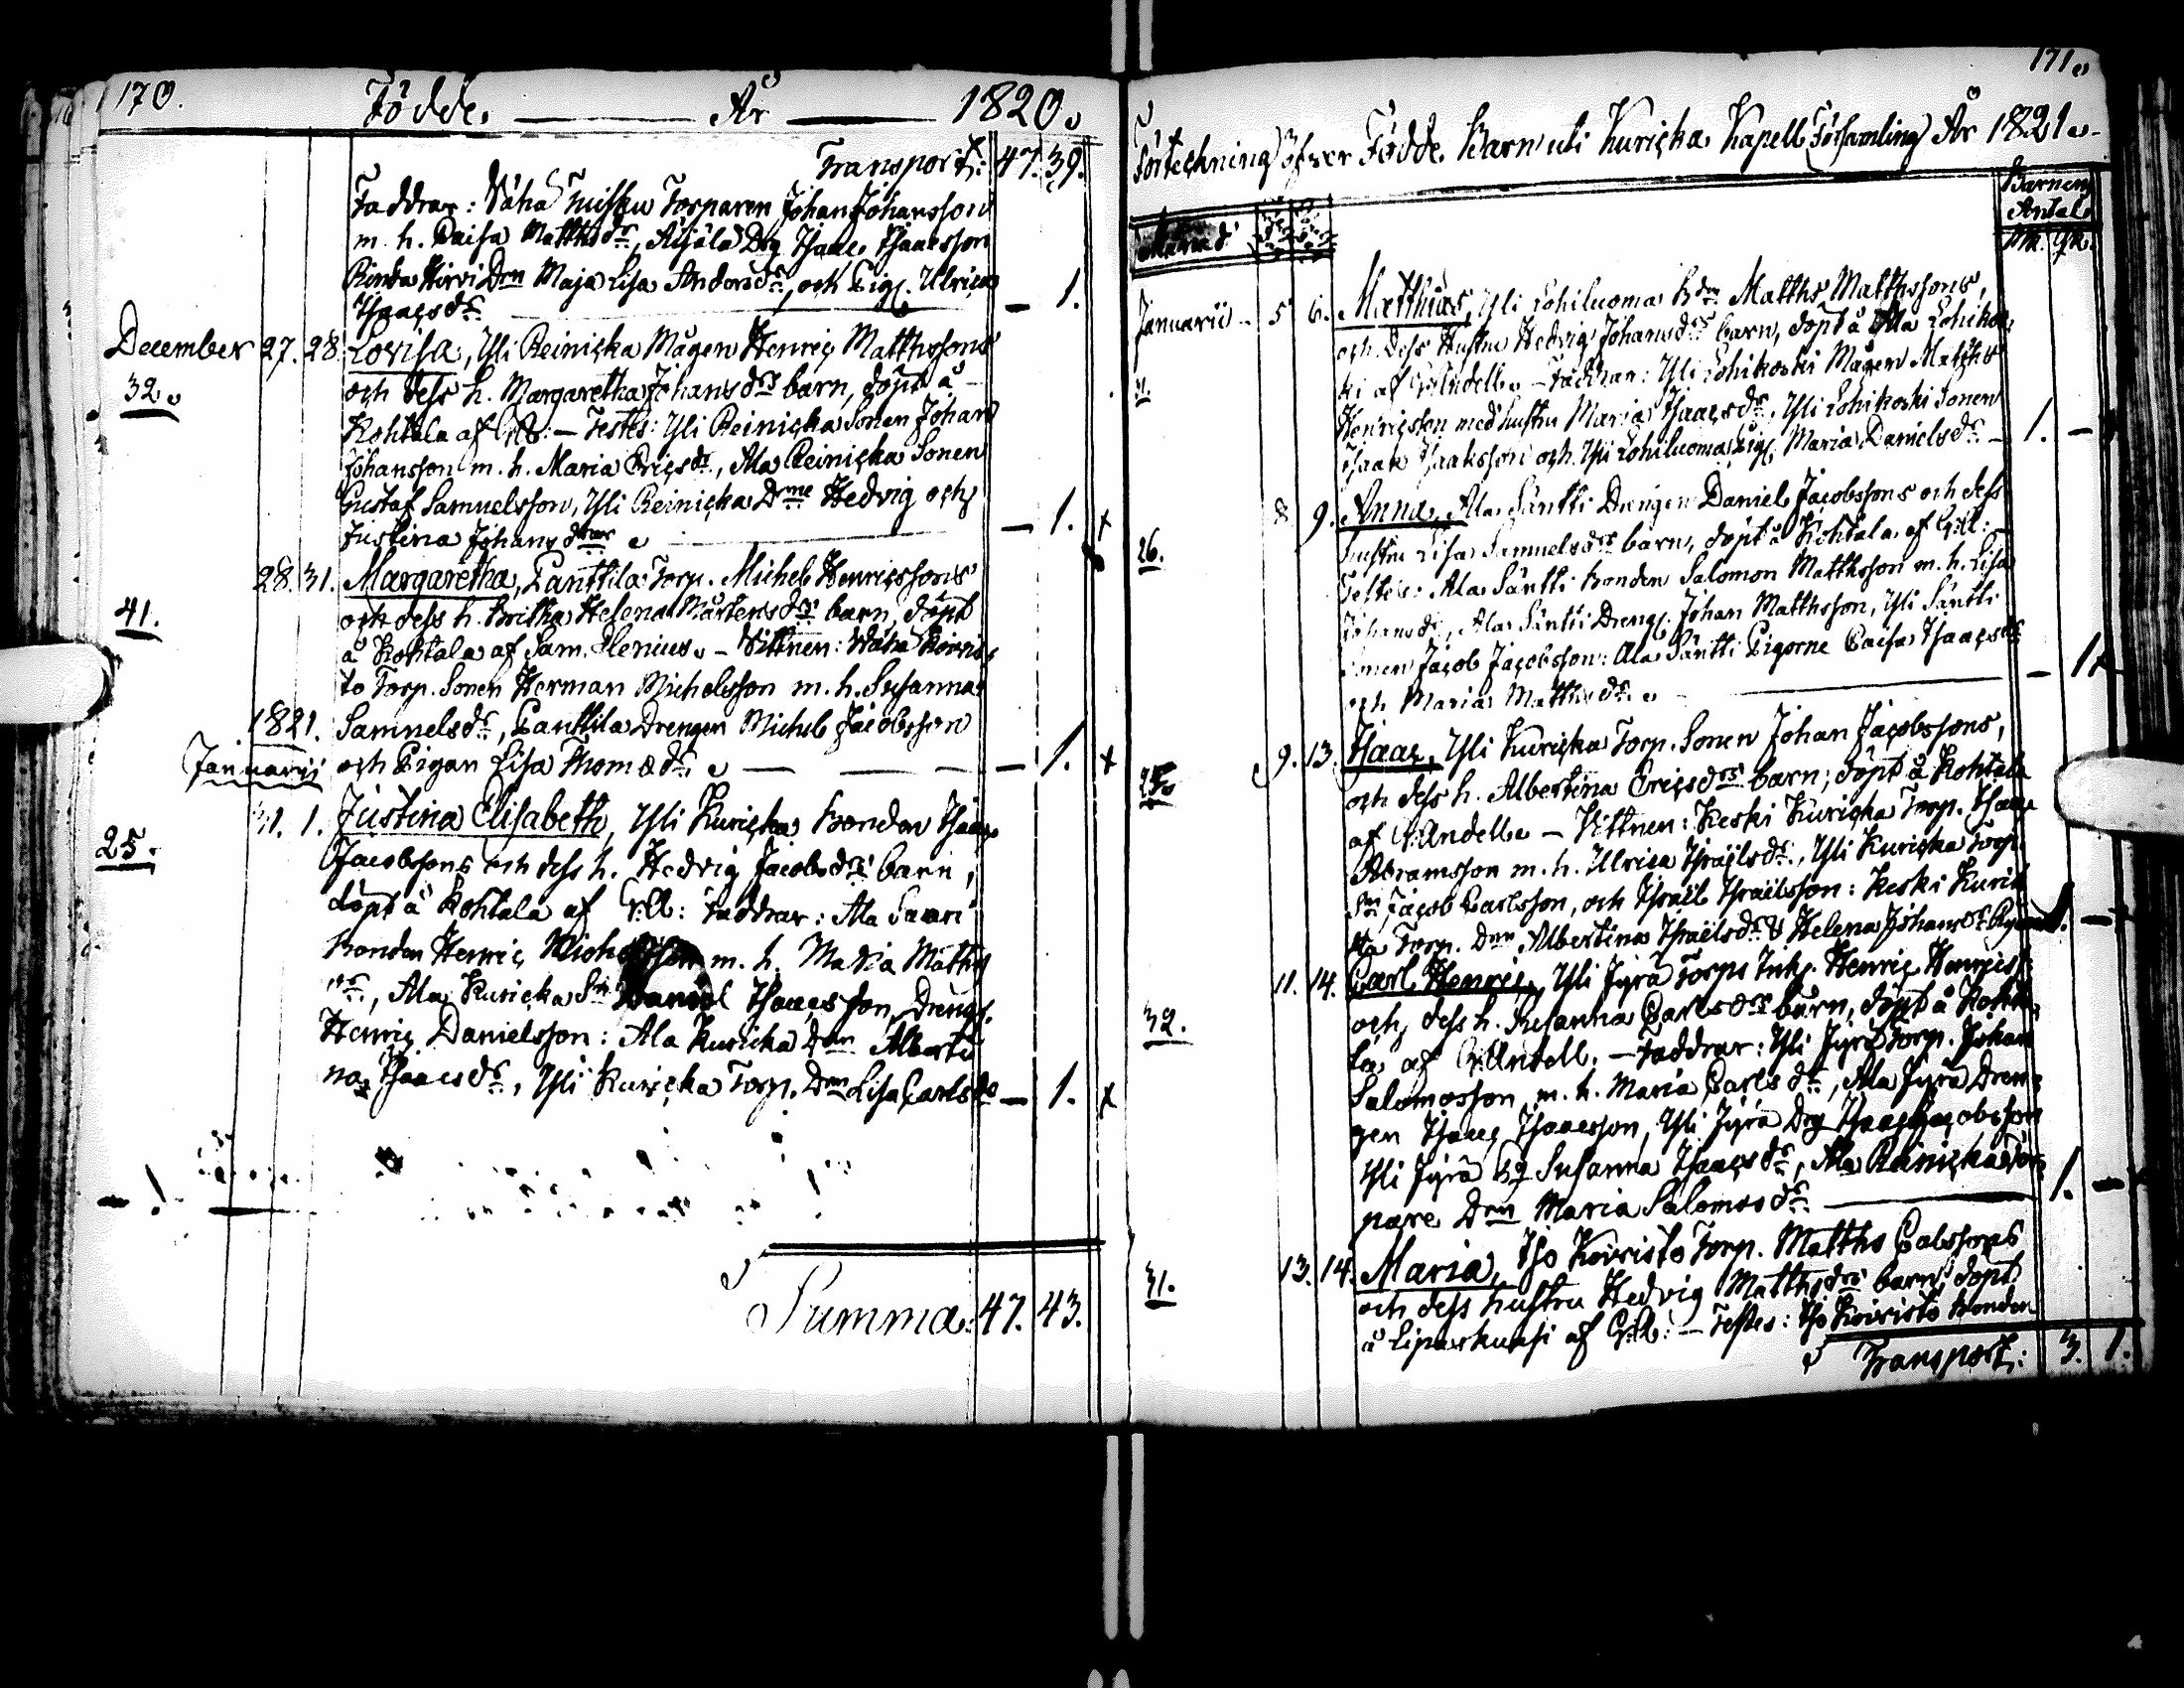 170. Födde. År 1820.
Transport: 47. 39.
Faddrar: Vähä Tuisku Torparen Johan Johansson
m. h. Caisa Matthsdr, Äijälä Dg Isaac Isaacsson
Rinta Hirvi Dn Maja Lisa Andersdr, och Pig. Ulrica
Isaacsdr — 1.
December 27. 28. Lovisa, Yli Reinicka Mågen Henric Matthssons
32. och dess h. Margaretha Johansdrs barn, döpt å
Kohtala af G:A: — Testes: Yli Reinicka Sonen Johan
Johansson m. h. Maria Ericsdr, Ala Reinicka Sonen
Gustaf Samuelsson, Yli Reinicka Drne Hedvig och
Justina Johansdrar — 1. x
28. 31. Margaretha, Panttila Torp. Michel Henricssons
41. och dess h. Britha Helena Mårtensdrs barn, döpt
å Kohtala af Sam. Alenius. — Vittnen: Wäha Koivis
to Torp. Sonen Herman Michelsson m. h. Susanna
1821. Samuelsdr, Panttila Drengen Michel Jacobsson
Januarii och Pigan Lisa Thomædr. — 1. x
31. 1. Justina Elisabeth, Yli Kuricka Bonden Isaac
25. Jacobssons och dess h. Hedvig Jacobsdrs barn,
döpt å Kohtala af G:A: Faddrar: Ala Saari
Bonden Henric Michelsson m. h. Maria Matths
dr, Ala Kuricka Sn Daniel Isaacsson, Dreng.
Henric Danielsson: Ala Kuricka Drn Alberti
na Isaacsdr, Yli Kuricka Torp. Drn Lisa Carlsdr — 1. x
Summa: 47. 43.
171.
Förteckning öfver Födde Barn uti Kuricka Kapell Församling År 1821.
Barnens
Antal
Månad Mk. Qk.
Januarii 5 6. Matthias, Yli Lohiluoma Bdn Matths Matthssons,
och dess Hustru Hedvig Johansdrs barn, döpt å Ala Lohikos
ki af G: Andell. — Faddrar: Yli Lohikoski Mågen Matths
Henricsson med hustru Maria Isaacsdr, Yli Lohikoski Sonen
Isaak Isaaksson och Yli Lohiluoma Pig. Maria Danielsdr — 1. —
8 9. Anna, Ala Säntti Drengen Daniel Jacobssons och dess
26. hustru Lisa Samuelsdrs barn, döpt å Kohtala af G:A: —
Testes: Ala Säntti Bonden Salomon Matthsson m. h. Lisa
Johansdr, Ala Säntti Dreng. Johan Matthsson, Yli Säntti
Sonen Jacob Jacobsson: Ala Säntti Pigorne Caisa Isaacsdr
och Maria Matthsdr. — 1.
9. 13. Isaac, Yli Kuricka Torp. Sonen Johan Jacobssons,
25. och dess h. Albertina Ericsdrs barn; döpt å Kohtala
af G: Andell. — Vittnen: Keski Kuricka Torp. Isaac
Abramsson m. h. Ulrica Israëlsdr, Yli Kuricka Torp.
Sn Jacob Carlsson, och Israël Israëlsson: Keski Kuric
ka Torp. Drn Albertina Israëlsdr & Helena Johansdr 1. —
11. 14. Carl Henric, Yli Jyrä Torps Inh. Henric Henrics
32. och dess h. Susanna Carlsdrs barn, döpt å Kohta
la af G: Andell. — Faddrar: Yli Jyrä Torp. Johan
Salomosson m. h. Maria Carlsdr, Ala Jyrä Dren
gen Isaac Isaacsson, Yli Jyrä Dg Isaac Jacobsson
Yli Jyrä Pg Susanna Isaacsdr, Ala Reinicka Tor
pare Drn Maria Salomosdr — 1. —
13. 14. Maria, Iso Koivisto Torp. Matths Gabssons
31. och dess hustru Hedvig Matthsdrs barn, döpt
å af G:A: — Testes: Iso Koivisto Bonden
Transport: 3. 1.